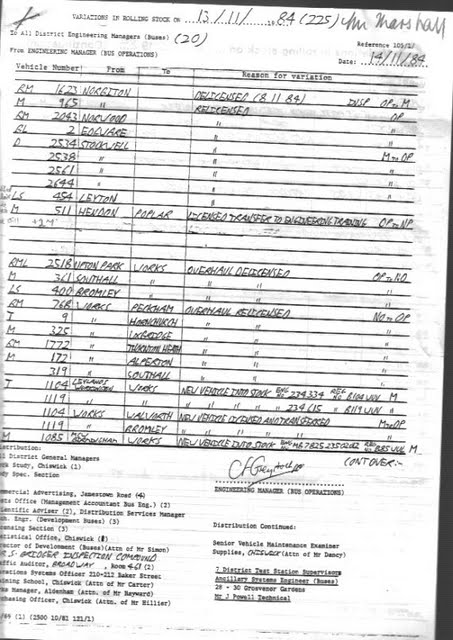 VARIATIONS IN ROLLING STOCK ON 13/11/ 84 (225) Mr Marshall
To All District Engineering Managers (Buses) (20)
Reference 105/1/
From ENGINEERING MANAGER (BUS OPERATIONS)
Date: 14/11/84
Vehicle Number From To Reason for variation
RM 1623 NORBITON DELICENSED (8 11 84) INSP OP to M
M 965 " RELICENSED OP
RM 2043 NORWOOD " "
RL 2 EDGWARE " "
D 2534 STOCKWELL " "
2538 " " M to OP
2561 " " "
2644 " " "
LS 454 LEYTON " "
M 511 HENDON POPLAR LICENSED TRANSFER TO ENGINEERING TRAINING OP to NP
RML 2518 UPTON PARK WORKS OVERHAUL DELICENSED OP to NO
M 361 SOUTHALL " " " "
LS 400 BROMLEY " " " "
RM 768 WORKS PECKHAM OVERHAUL RELICENSED NO to OP
T 9 " HORNCHURCH " " "
M 325 " UXBRIDGE " " "
RM 1772 " THORNTON HEATH " " "
M 172 " ALPERTON " " "
319 " SOUTHALL " " "
T 1104 LEYLANDS WORKS NEW VEHICLE INTO STOCK ENG NO 234334 REG NO B104 M
1119 " " " " " " 234615 " B119 M
1104 WORKS WALWORTH NEW VEHICLE LICENSED AND TRANSFERRED M to OP
1119 " BROMLEY " " " " "
M 1085 BIRMINGHAM WORKS NEW VEHICLE INTO STOCK REG NO B85 M
CONT OVER:-
ENGINEERING MANAGER (BUS OPERATIONS)
istribution:
ll District General Managers
rk Study, Chiswick (1)
dy Spec. Section
mmercial Advertising, Jamestown Road (4)
ets Office (Management Accountant Bus Eng.) (2)
ientific Adviser (2), Distribution Services Manager
h. Engr. (Development Buses) (3)
censing Section (3)
atistical Office, Chiswick
rector of Development (Buses) (Attn of Mr Simon)
INSPECTION COMPOUND
affic Auditor, BROADWAY, Room 461 (2)
rations Systems Officer 210-212 Baker Street
aining School, Chiswick (Attn of Mr Carter)
ks Manager, Aldenham (Attn. of Mr Hayward)
rchasing Officer, Chiswick (Attn of Mr Hillier)
Distribution Continued:
Senior Vehicle Maintenance Examiner
Supplies, CHISWICK (Attn of Mr Dancy)
7 District Test Station Supervisors
Ancillary Systems Engineer (Buses)
28 - 30 Grosvenor Gardens
Mr J Powell Technical
/89 (1) (2500 10/81 121/1)